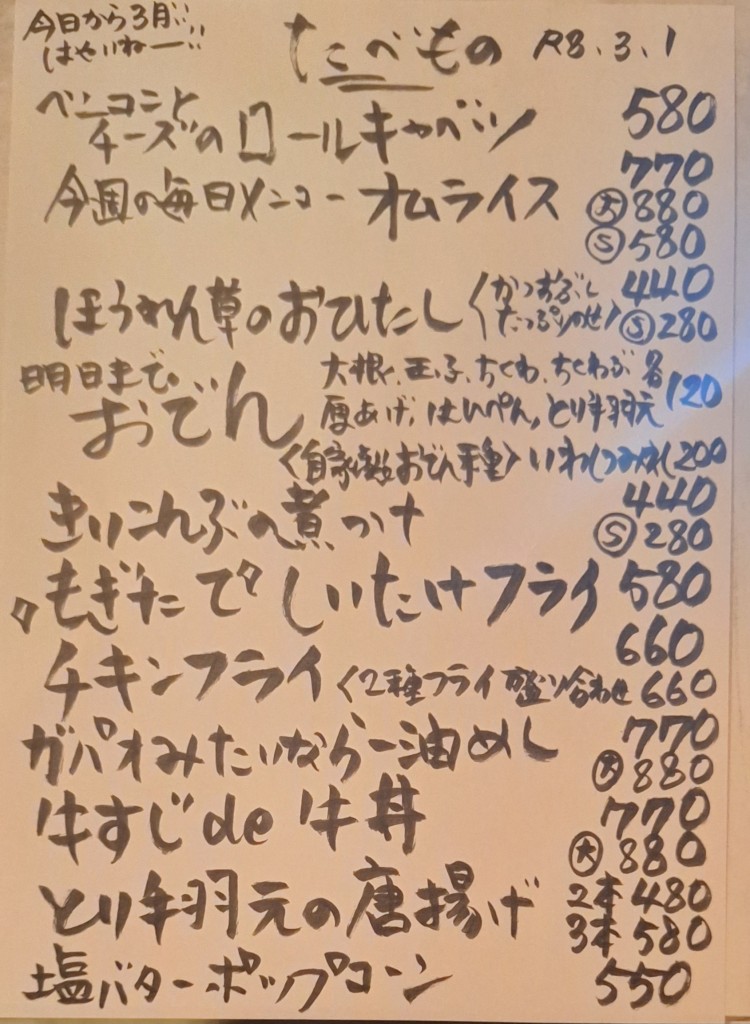 今日から3月!!
はやいねー!!
たこべもの R8.3.1
ベーコンと
チーズのロールキャベツ 580
今週の毎日メニュー オムライス 770
大880
S580
ほうれん草のおひたし〈かつおぶし
たっぷりのせ〉 440
S280
明日まで。
おでん 大根、玉子、ちくわ、ちくわぶ 各120
厚あげ、はんぺん、とり手羽元
〈自家製おでん種〉いわしつみれ 200
きりこんぶの煮つけ 440
S280
"もぎたて"しいたけフライ 580
チキンフライ 660
〈2種フライ盛り合わせ 660
ガパオみたいならー油めし 770
大880
牛すじde牛丼 770
大880
とり手羽元の唐揚げ 2本480
3本580
塩バターポップコーン 550